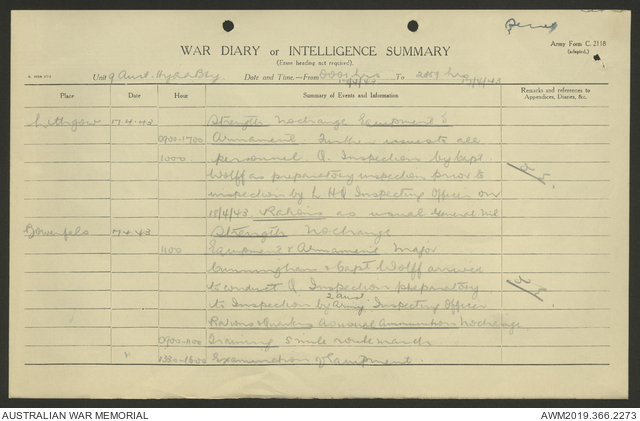 Army Form C. 2118
(adapted.)
WAR DIARY or INTELLIGENCE SUMMARY
(Erase heading not required).
Unit 9 Aust. Hy AA Bty. Date and Time—From 0001 hrs 17/4/43 To 2359 hrs 17/4/43
Place Date Hour Summary of Events and Information Remarks and references to Appendices, Diaries, &c.
Lithgow 17-4-43 Strength Nochange Equipment &
0900-1700 Armament all
1000 personnel Q. Inspection by Capt.
Wolff as preparatory inspection prior to
inspection by L.H.Q Inspecting Officer on
18/4/43. Rations as usual General Nil
Bowenfels 17-4-43 Strength Nochange
1100 Equipment & Armament Major
Cunningham & Capt Wolff arrived
to conduct Q Inspection preparatory
to Inspection by 2 Aust. Army Inspecting Officer
Rations & Quarters As usual Ammunition Nochange
0900-1100 Training 5 mile route march
" 1330-1600 Examination of Equipment.
AUSTRALIAN WAR MEMORIAL
AWM2019.366.2273